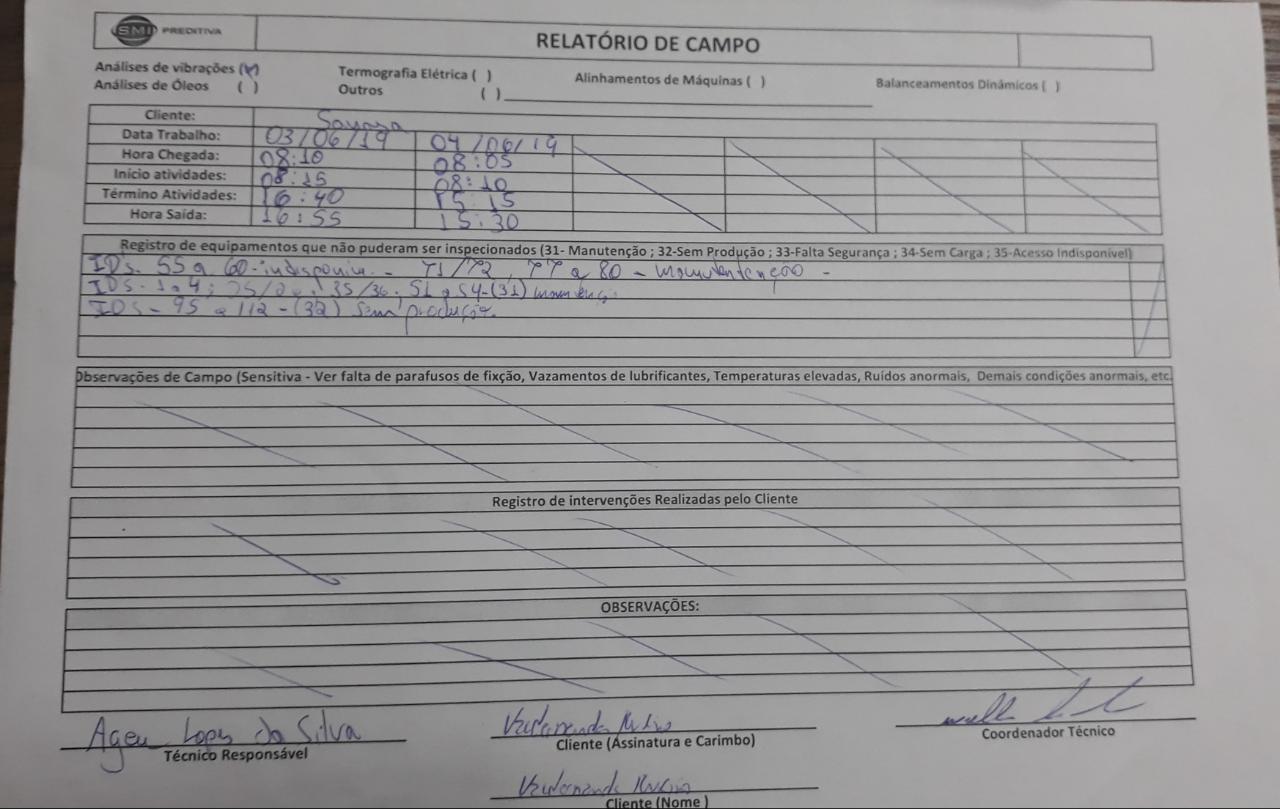 SMI PREDITIVA
RELATÓRIO DE CAMPO
Análises de vibrações (X) Termografia Elétrica ( ) Alinhamentos de Máquinas ( ) Balanceamentos Dinâmicos ( )
Análises de Óleos ( ) Outros ( )
Cliente:
Data Trabalho: 03/06/19 04/06/19
Hora Chegada: 08:10 08:05
Início atividades: 08:15 08:10
Término Atividades: 16:40 15:15
Hora Saída: 16:55 15:30
Registro de equipamentos que não puderam ser inspecionados (31- Manutenção ; 32-Sem Produção ; 33-Falta Segurança ; 34-Sem Carga ; 35-Acesso Indisponível)
IDs. 55 a 60 - - 71/72, 77 a 80 - manutenção -
IDs - 35/36. 51 a 54 - (31)
IDs - 95 a 112 - (32) Sem produção.
Observações de Campo (Sensitiva - Ver falta de parafusos de fixção, Vazamentos de lubrificantes, Temperaturas elevadas, Ruídos anormais, Demais condições anormais, etc.
Registro de intervenções Realizadas pelo Cliente
OBSERVAÇÕES:
Ageu Lopes da Silva
Técnico Responsável
Cliente (Assinatura e Carimbo)
Coordenador Técnico
Cliente (Nome )